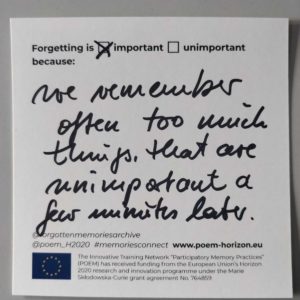 Forgetting is ☒ important ☐ unimportant
because:
we remember
often too much
things, that are
unimportant a
few minutes later.
@forgottenmemoriesarchive
@poem_H2020 #memoriesconnect www.poem-horizon.eu
The Innovative Training Network "Participatory Memory Practices"
(POEM) has received funding from the European Union's Horizon
2020 research and innovation programme under the Marie
Skłodowska-Curie grant agreement No. 764859.